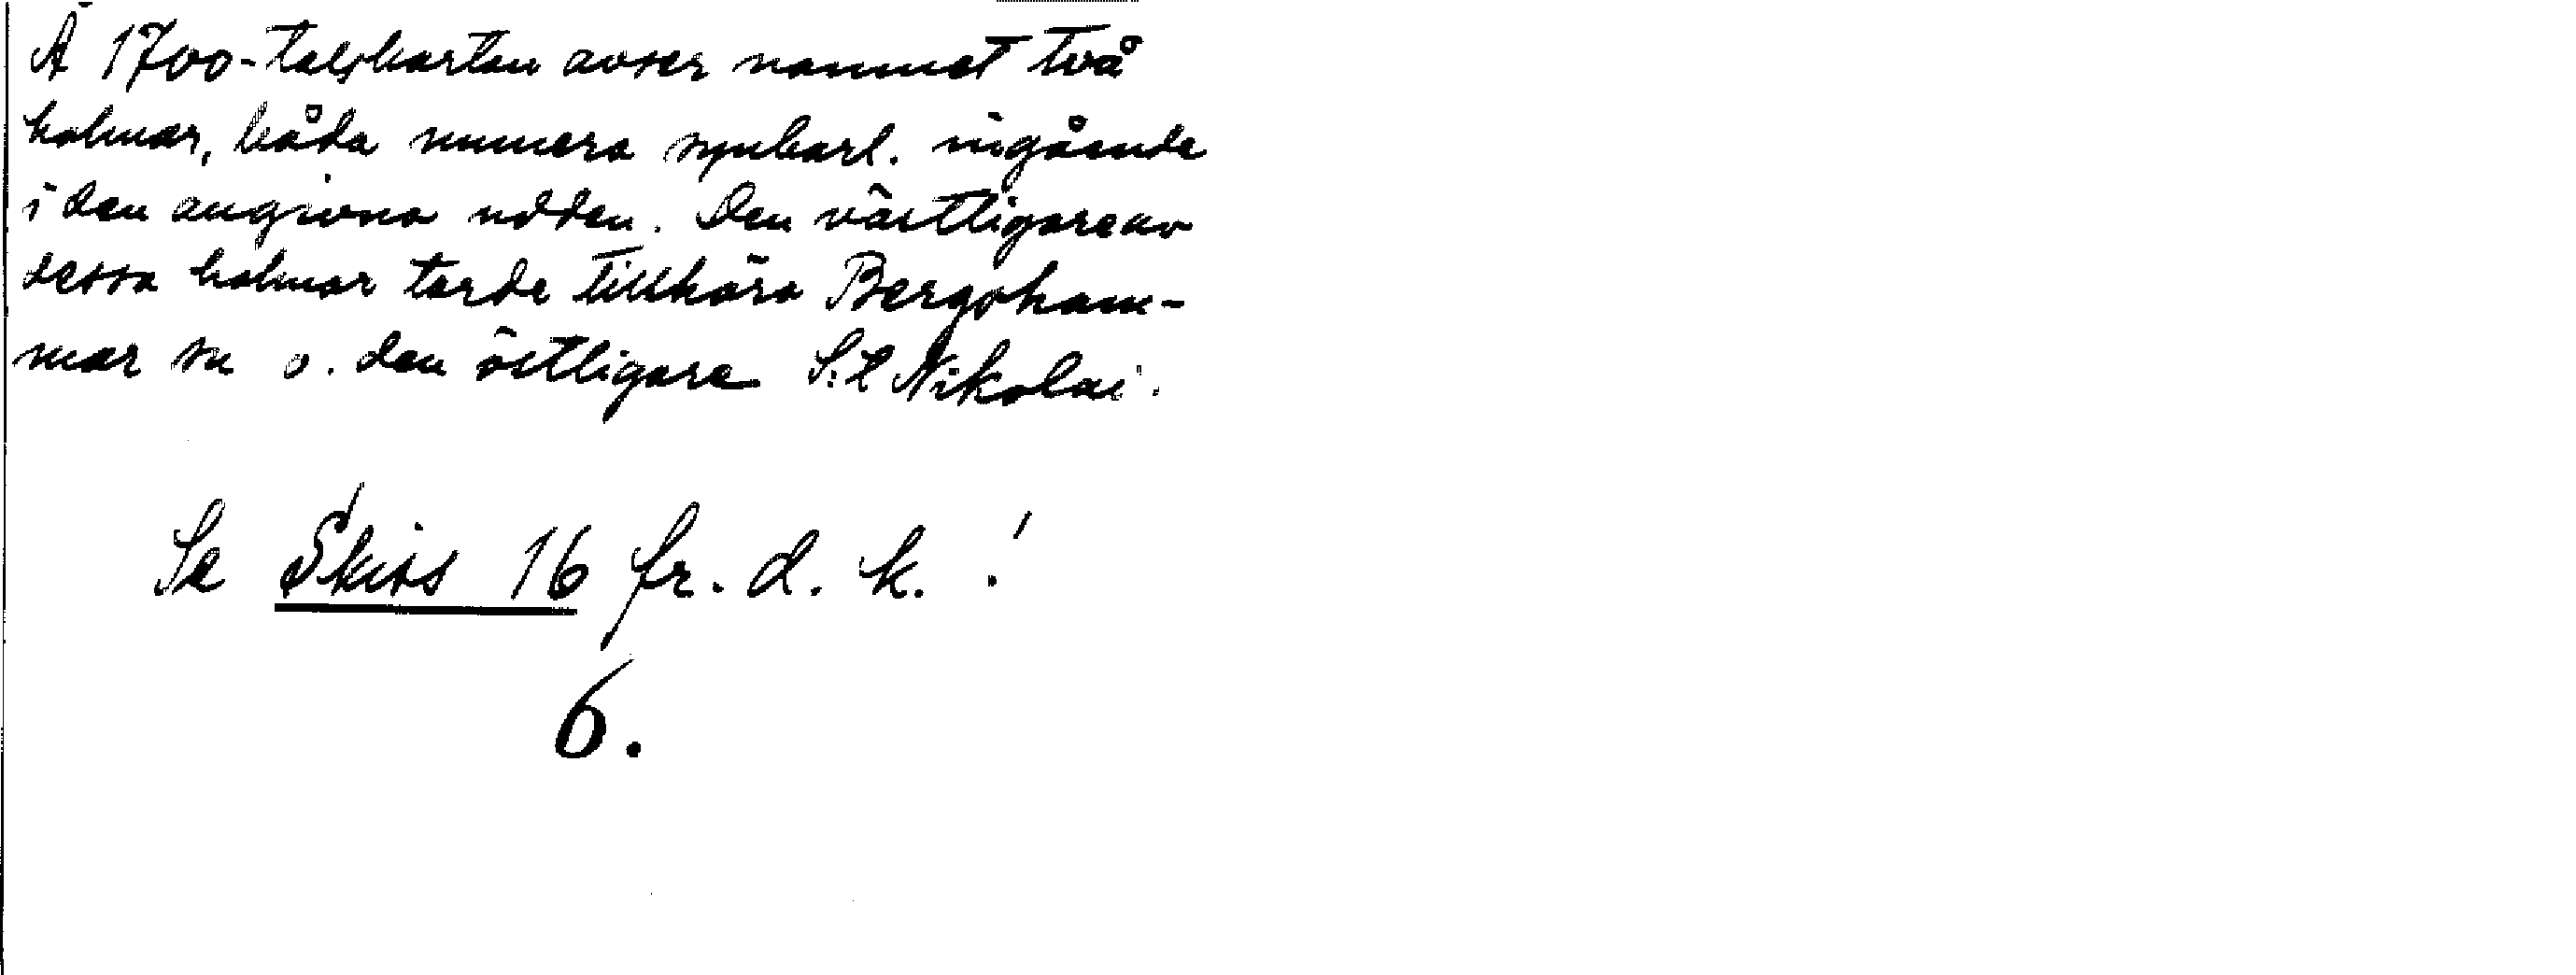 Å 1700-talskartan avser namnet två
holmar, båda numera synbarl. ingående
i den angivna udden. Den västligare av
dessa holmar torde tillhöra Bergsham-
mar sn o. den östligare S:t Nikolai.
Se Skiss 16 fr. d. k. !
6.